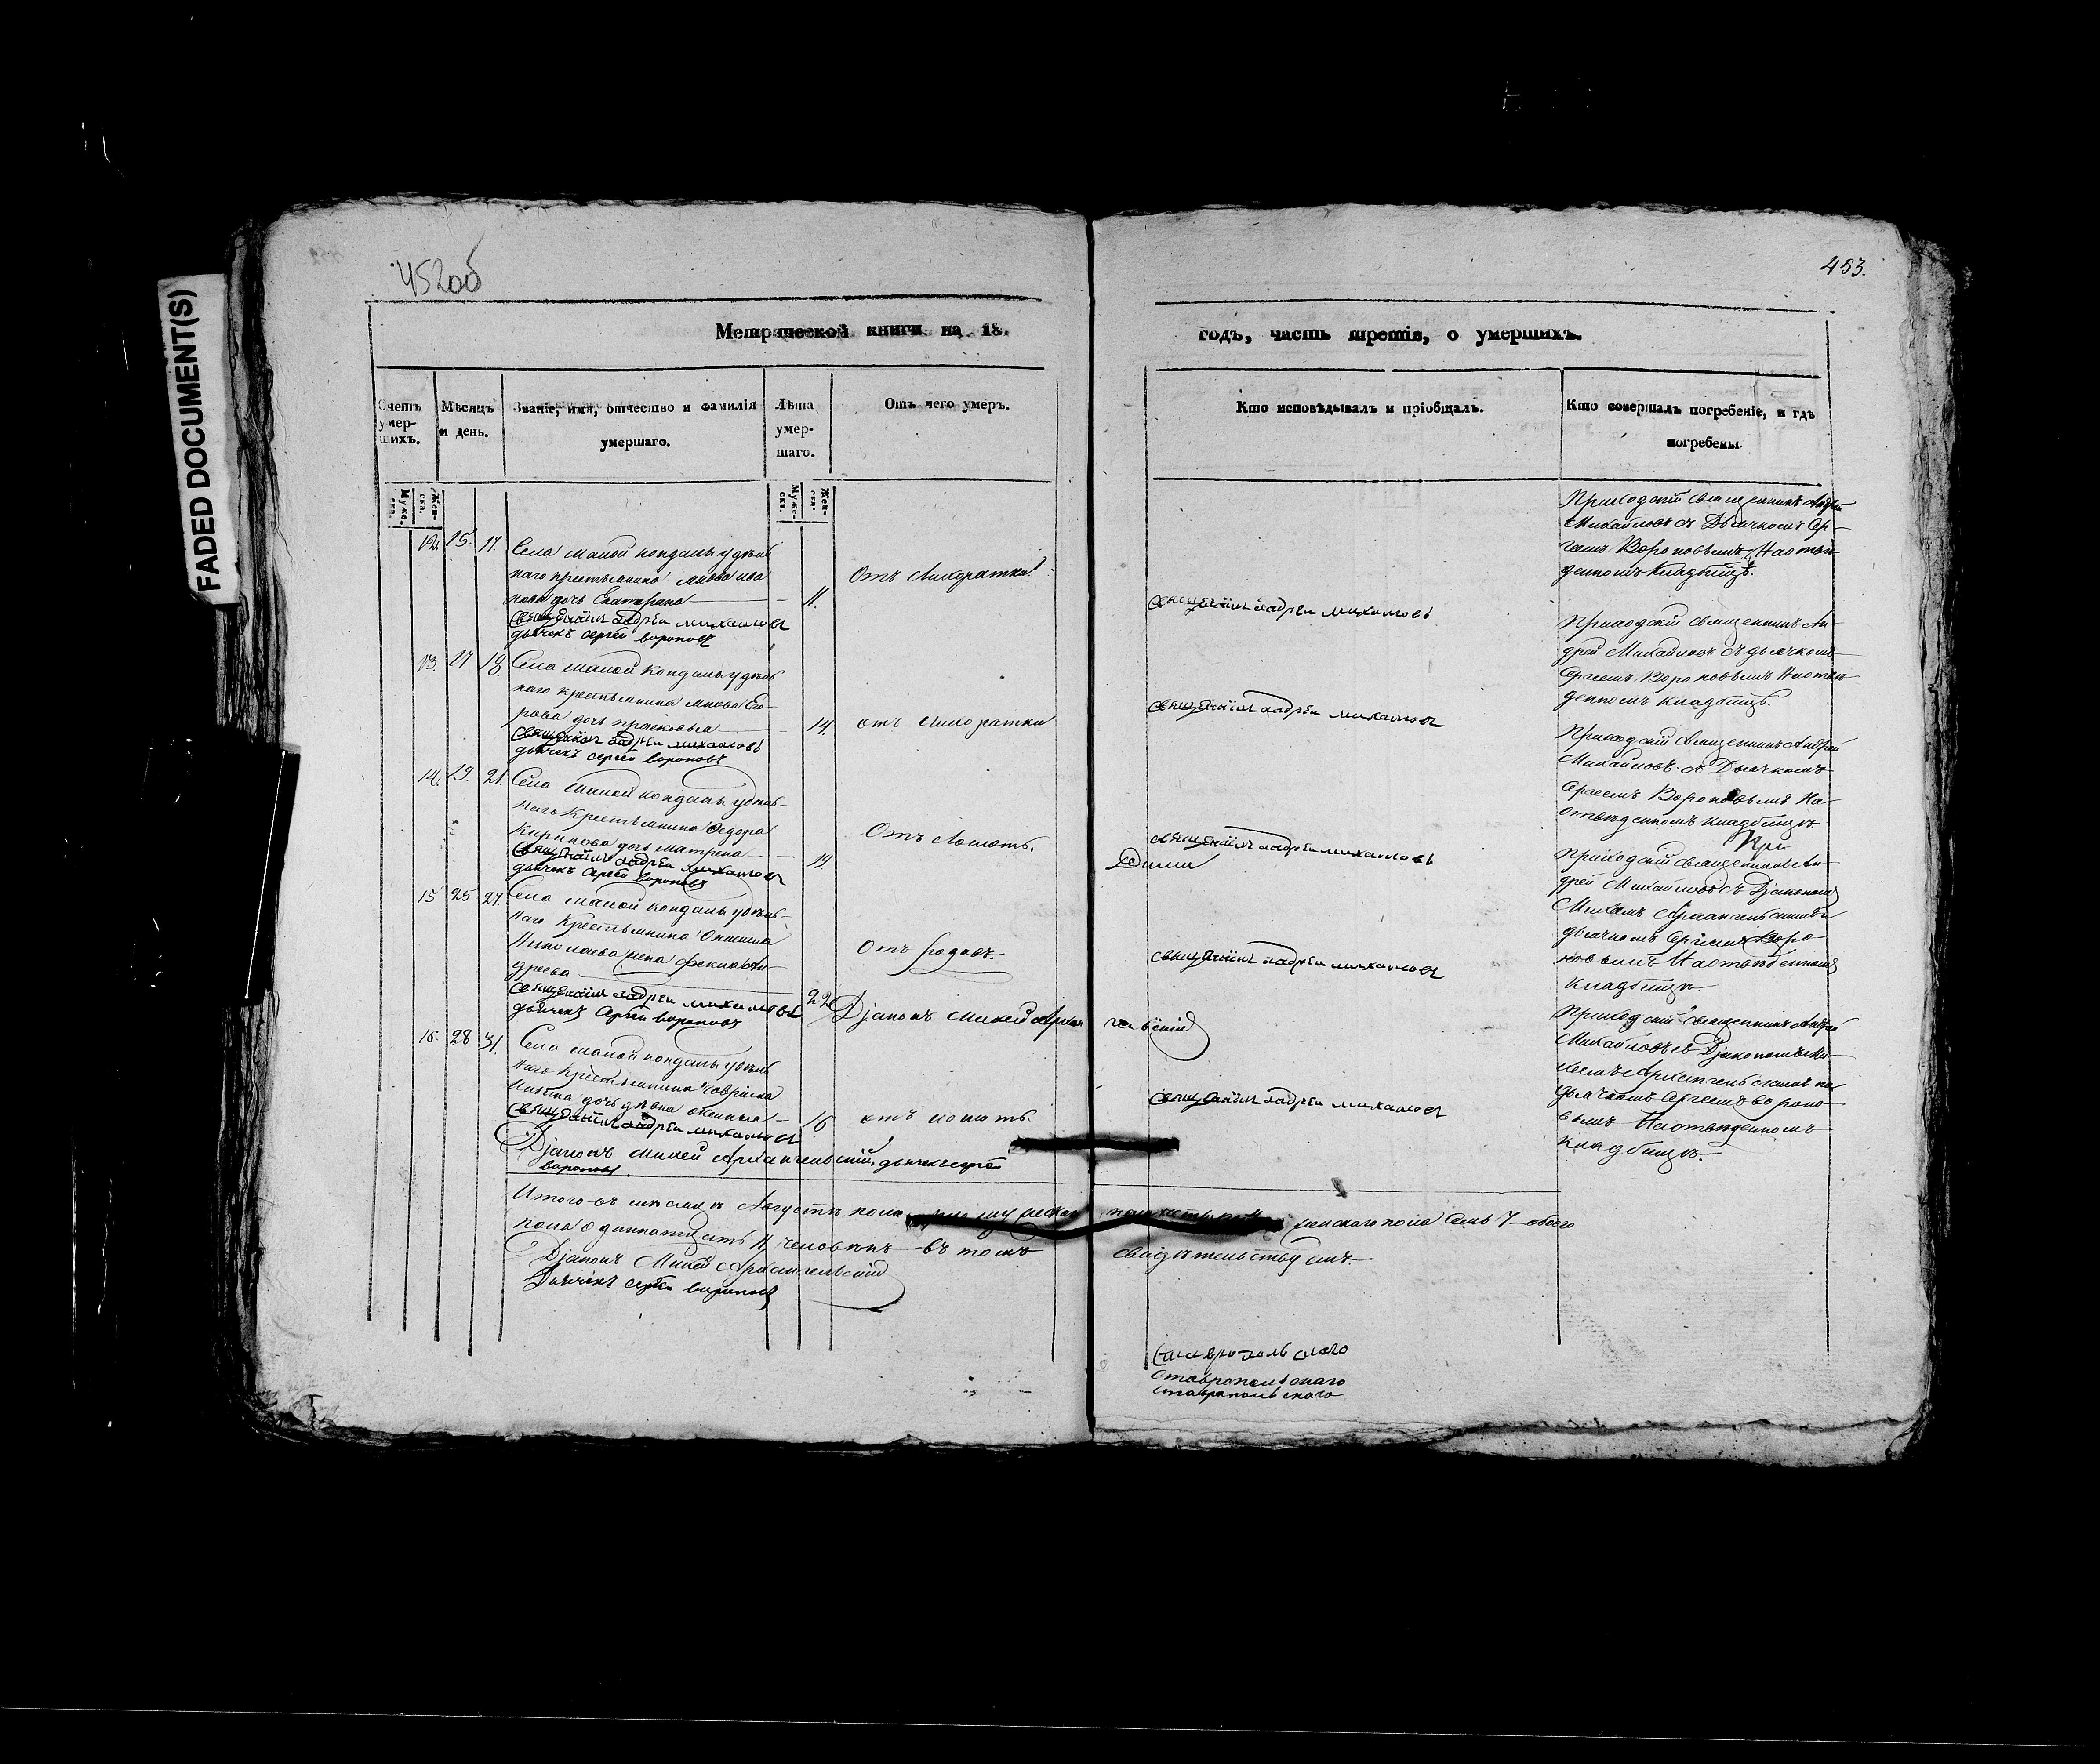 452об
453.
FADED DOCUMENT(S)
Метрической книги на 18.
годъ, часть третія, о умершихъ.
Счетъ умер-шихъ.
Мѣсяцъ и день.
Званіе, имя, отчество и фамилія умершаго.
Лѣта умер-шаго.
Отъ чего умеръ.
Кто исповѣдывалъ и пріобщалъ.
Кто совершалъ погребеніе, и гдѣ погребены.
Муже-ска.
Жен-ска.
Муже-ска.
Жен-ска.
12. 15. 17. Села малой кондалы удѣль
наго крестьянина
дочь Екатерина
11.
Отъ Лихоратки
священникъ андреи михаиловъ
дьячекъ сергей вороновъ
священникъ андреи михаиловъ
Приходскій священникъ Андрей
Михайловъ съ Дьячкомъ Сер-
геемъ Вороновымъ На отве-
денномъ кладбищѣ.
13. 17 18. Села малой кондалы удѣль
наго крестьянина Его-
рова дочь прасковья
14.
отъ лихоратки
священникъ андреи михаиловъ
дьячекъ сергей вороновъ
священникъ андреи михаиловъ
Приходскій священникъ Ан-
дрей Михайловъ съ дьячкомъ
Сергеемъ Вороновымъ На отве-
денномъ кладбищѣ.
14. 19. 21. Села малой кондалы удѣль-
наго Крестьянина Федора
Кирилова дочь матрена
19.
священникъ андреи михаиловъ
дьячекъ сергей вороновъ
священникъ андреи михаиловъ
Приходскій священникъ Андрей
Михайловъ съ Дьячкомъ
Сергеемъ Вороновымъ На
отведенномъ кладбищѣ.
15 25 27. Села малой кондалы удѣль-
наго Крестьянина
Николаева жена фекла Ан-
дреева
22
Отъ родовъ.
священникъ андреи михаиловъ
дьячекъ Сергей вороновъ
Дiаконъ Михей Архан
гельскій
священникъ андреи михаиловъ
При
Приходскій священникъ Ан-
дрей Михайловъ съ Дiакономъ
Михеемъ Архангельскимъ и
дьячкомъ Сергеемъ Воро-
новымъ На отведенномъ
кладбищѣ.
16. 28 31. Села малой кондалы удѣль
наго Крестьянина Гаврила
дочь дѣвка
16
священникъ андреи михаиловъ
Дiаконъ Михей Архангельскій, дьячекъ сергей
вороновъ
священникъ андреи михаиловъ
Приходскій священникъ Андрей
Михайловъ съ Дiакономъ Ми-
хеемъ Архангельскимъ и
дьячкомъ Сергеемъ вороно-
вымъ На отведенномъ
кладбищѣ.
Итого въ месяцѣ Августѣ женскаго пола Семь 7 обоего
пола одиннатцать 11, человѣкъ въ томъ свидѣтельствуемъ.
Дiаконъ Михей Архангельскій
Дьячекъ сергей вороновъ
Ставропольскаго
Ставропольскаго
ставропольскаго